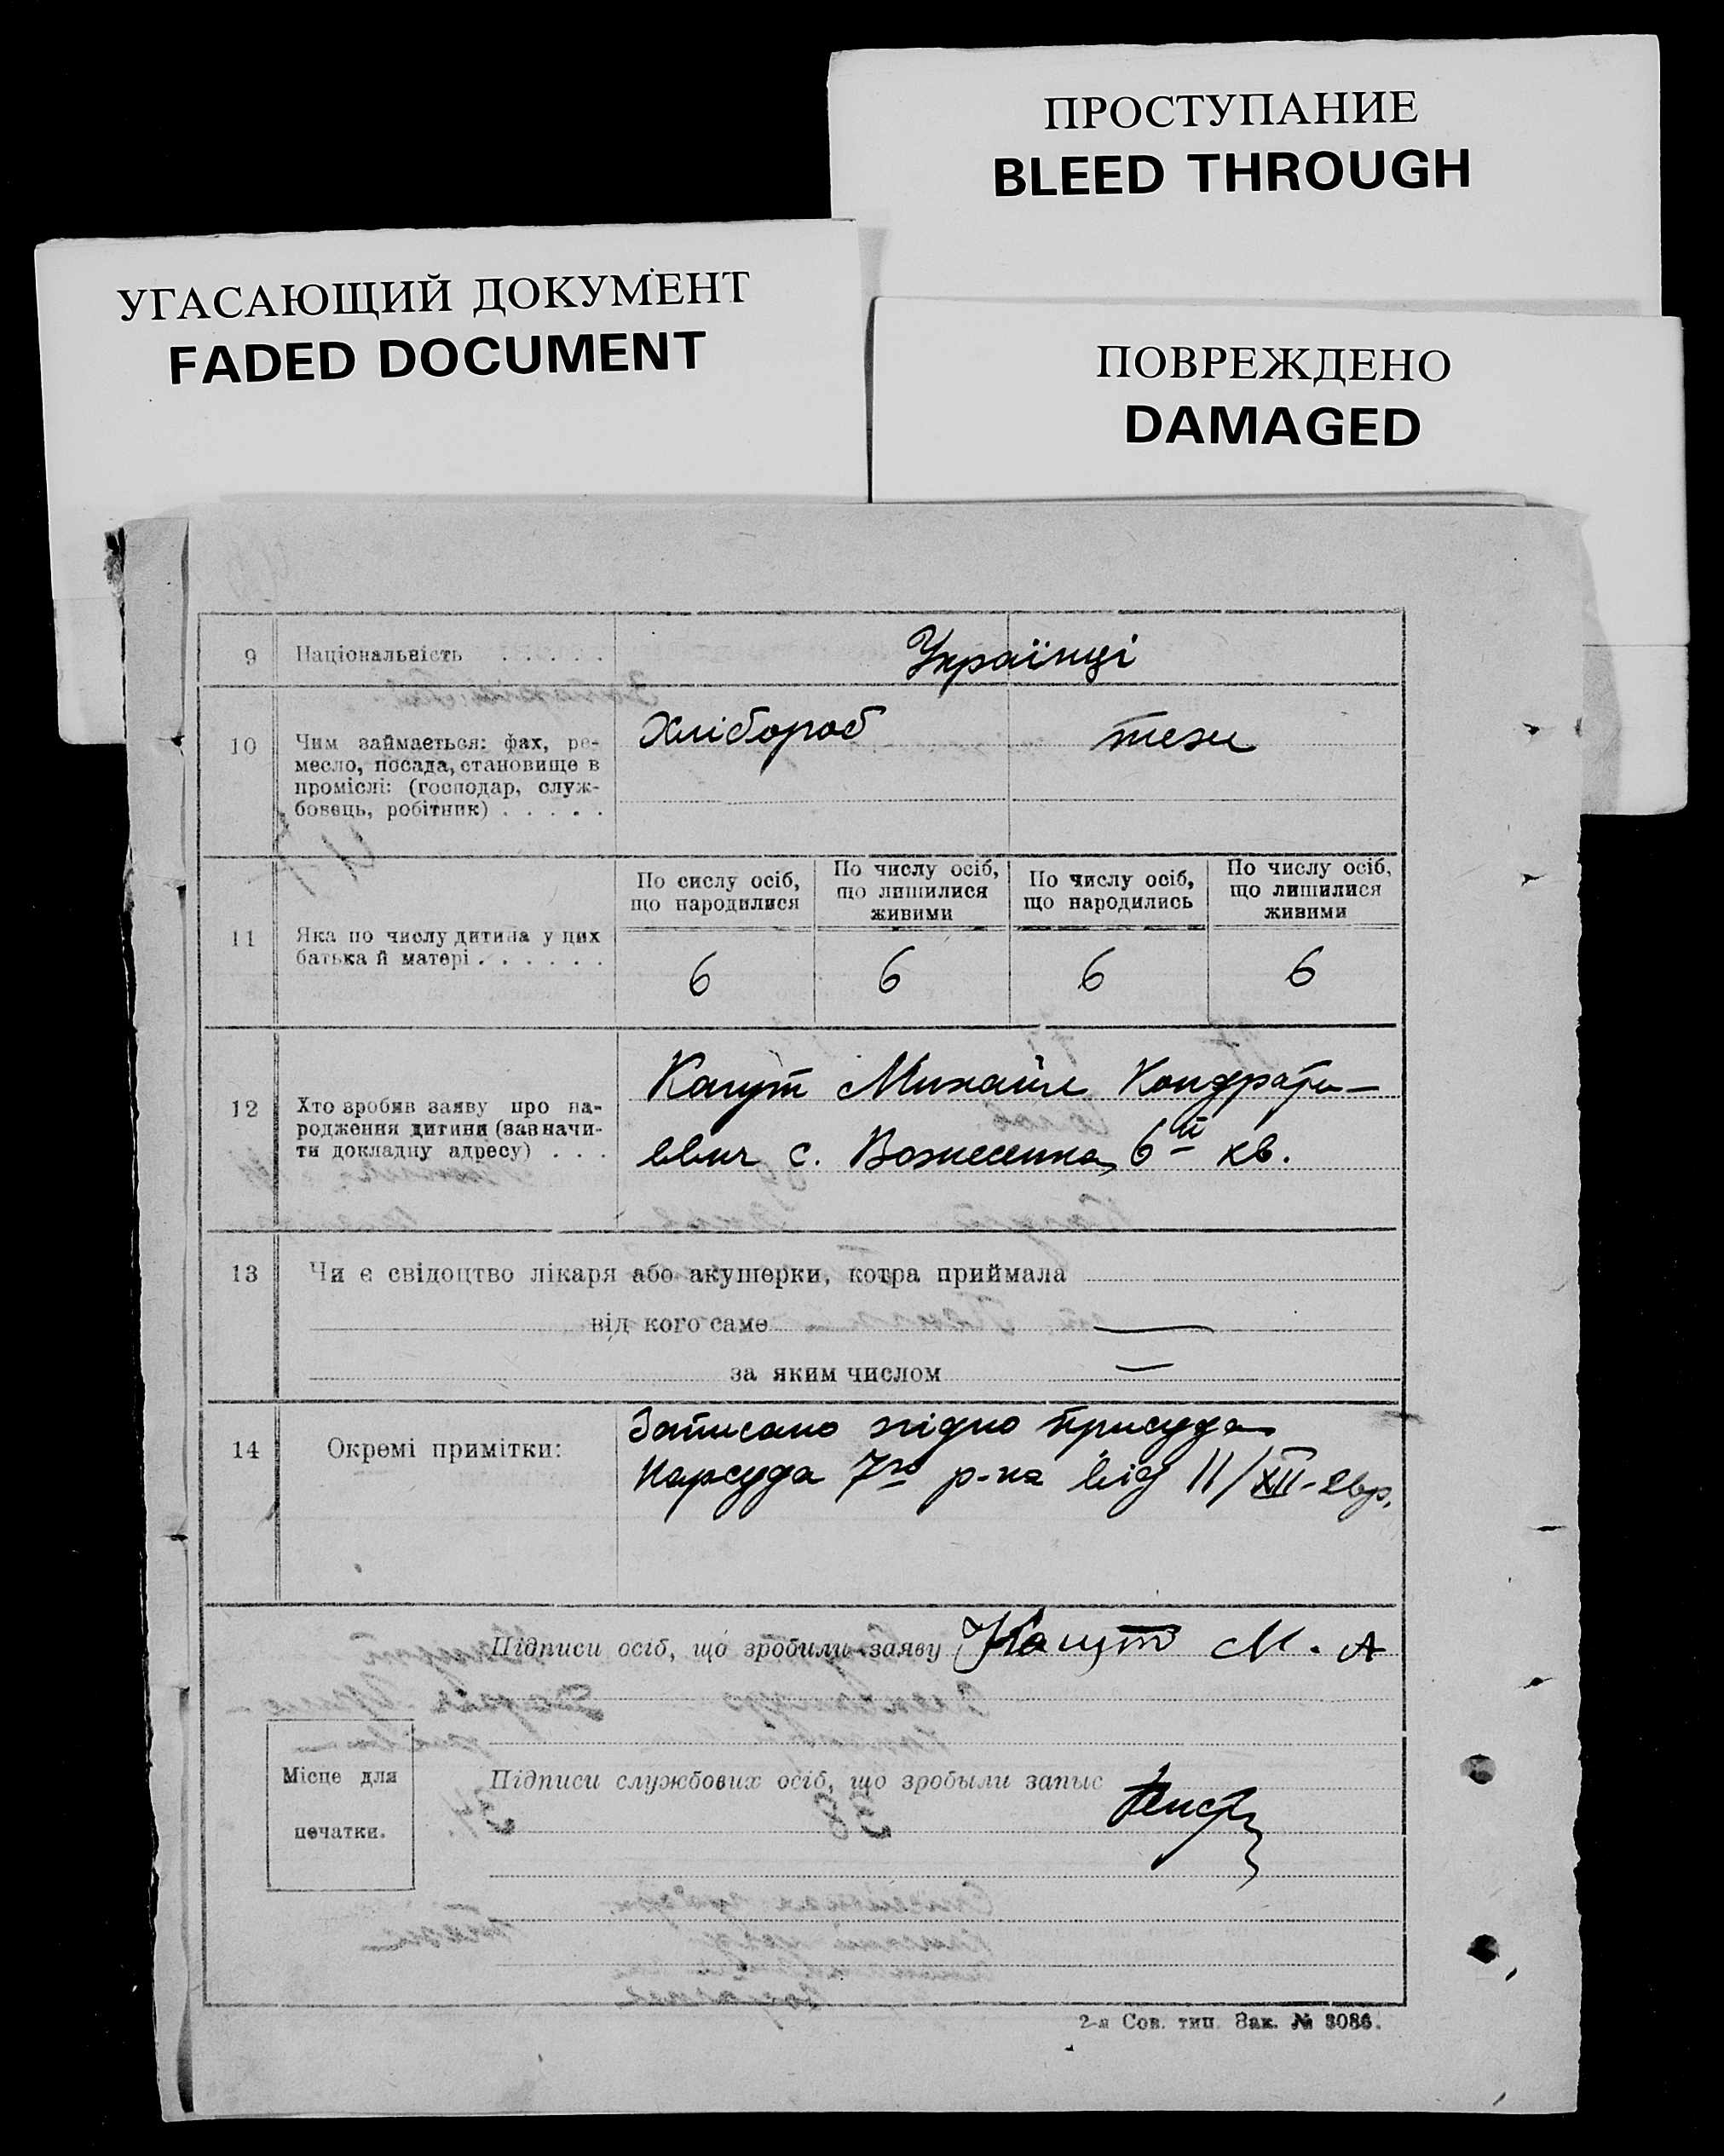 ПРОСТУПАНИЕ
BLEED THROUGH
УГАСАЮЩИЙ ДОКУМЕНТ
FADED DOCUMENT
ПОВРЕЖДЕНО
DAMAGED
9 Національність . . . . . Українці
10 Чим займається: фах, ре-
месло, посада, становище в
промислі: (господар, служ-
бовець, робітник) . . . . .
Хлібороб теж
По сислу осіб,
що народилися
По числу осіб,
що лишилися
живими
По числу осіб,
що народились
По числу осіб,
що лишилися
живими
11 Яка по числу дитина у цих
батька й матері . . . . . .
6 6 6 6
12 Хто зробив заяву про на-
родження дитини (зазначи-
ти докладну адресу) . . .
Кагут Михайле Кондрати-
евич с. Вознесенка, 6й кв.
13 Чи є свідоцтво лікаря або акушерки, котра приймала
від кого саме —
за яким числом —
14 Окремі примітки:
Записано згідно присуда
Нарсуда 7го р-на від 11/XII-
Підписи осіб, що зробили заяву Кагут М. А
Місце для
печатки.
Підписи службових осіб, що зробыли запыс
2-я Сов. тип. Зак. № 3086.